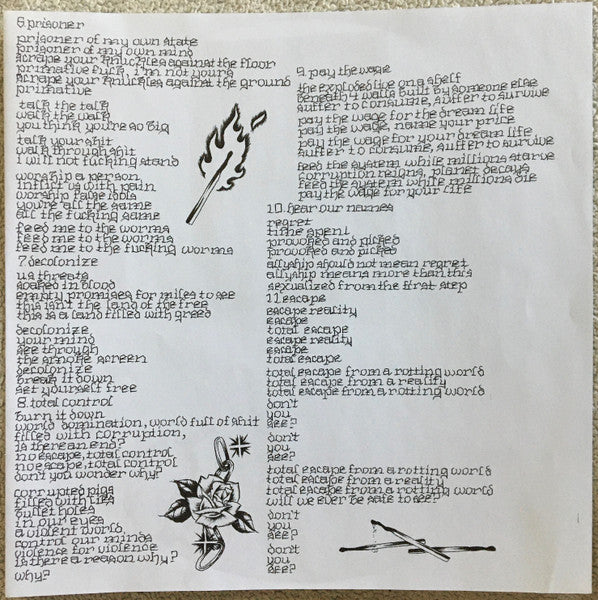 6 prisoner
prisoner of my own state
prisoner of my own mind
scrape your knuckles against the floor
primative fuck, i'm not yours
scrape your knuckles against the ground
primative
talk the talk
walk the walk
you think you're so big
talk your shit
walk through shit
I will not fucking stand
worship a person
inflict us with pain
worship false idols
you're all the same
all the fucking same
feed me to the worms
feed me to the worms
feed me to the fucking worms
7 decolonize
us threats
soaked in blood
empty promises for miles to see
this isn't the land of the free
this is a land filled with greed
decolonize
your mind
see through
the smoke screen
decolonize
break it down
set yourself free
8 total control
burn it down
world domination, world full of shit
filled with corruption,
is there an end?
no escape, total control
no escape, total control
don't you wonder why?
corrupted pigs
filled with lies
bullet holes
in our eyes
a violent world
control our minds
violence for violence
is there a reason why?
why?
9 pay the wage
the exploded live on a shelf
beneath 4 walls built by someone else
suffer to consume, suffer to survive
pay the wage for the dream life
pay the wage, name your price
pay the wage for your dream life
suffer to consume, suffer to survive
feed the system while millions starve
corruption reigns, planet decays
feed the system while millions die
pay the wage for your life
10. hear our names
regret
time spent
provoked and picked
provoked and picked
allyship should not mean regret
allyship means more than this
sexualized from the first step
11 escape
escape reality
escape
total escape
escape reality
escape
total escape
total escape from a rotting world
total escape from a reality
total escape from a rotting world
don't
you
see?
don't
you
see?
total escape from a rotting world
total escape from a reality
total escape from a rotting world
will we ever be safe to see?
don't
you
see?
don't
you
see?